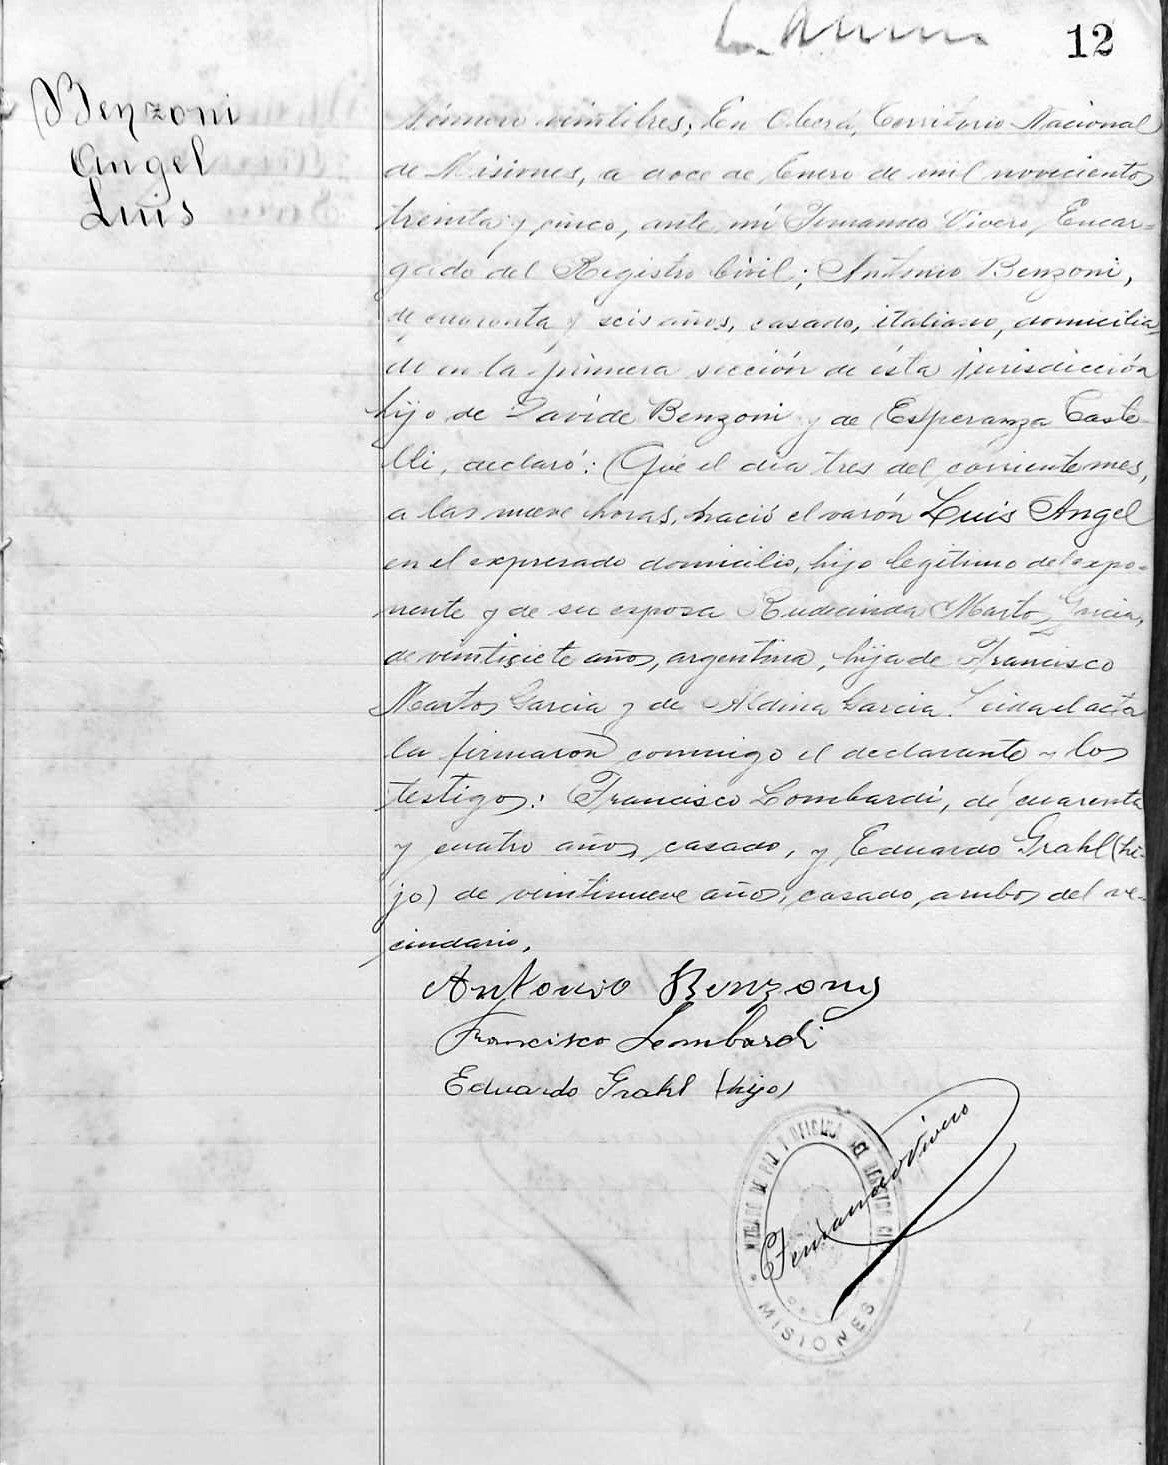 12
Benzoni
Angel
Luis
Número veintitres; En Oberá, Territorio Nacional
de Misiones, a doce de Enero de mil novecientos
treinta y cinco, ante mí Fernando Vivero, Encar-
gado del Registro Civil; Antonio Benzoni,
de cuarenta y seis años, casado, italiano, domicilia
do en la primera sección de ésta jurisdicción
hijo de Davide Benzoni y de Esperanza Caste-
lli, declaró: Que el dia tres del corriente mes,
a las nueve horas, nació el varón Luis Angel
en el expresado domicilio, hijo legítimo del expo-
nente y de su esposa Rudecinda Martos Garcia,
de veintisiete años, argentina, hija de Francisco
Martos Garcia y de Aldina Garcia. Leida el acta
la firmaron conmigo el declarante y los
testigos: Francisco Lombardi, de cuarenta
y cuatro años casado, y Eduardo Grahl (hi-
jo) de veintinueve años, casado, ambos del ve-
cindario.
Antonio Benzony
Francisco Lombardi
Eduardo Grahl (hijo)
Fernando Vivero
JUZGADO DE PAZ Y OFICINA DEL REGISTRO CI
MISIONES